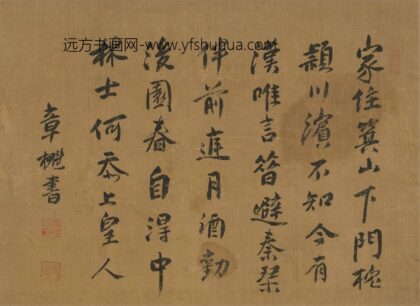 远方书画网-www.yfshuhua.com
家住箕山下門枕
頴川濱不知今有
漢唯言昔避秦琴
伴前庭月酒勸
後園春自得中
林士何忝上皇人
章書